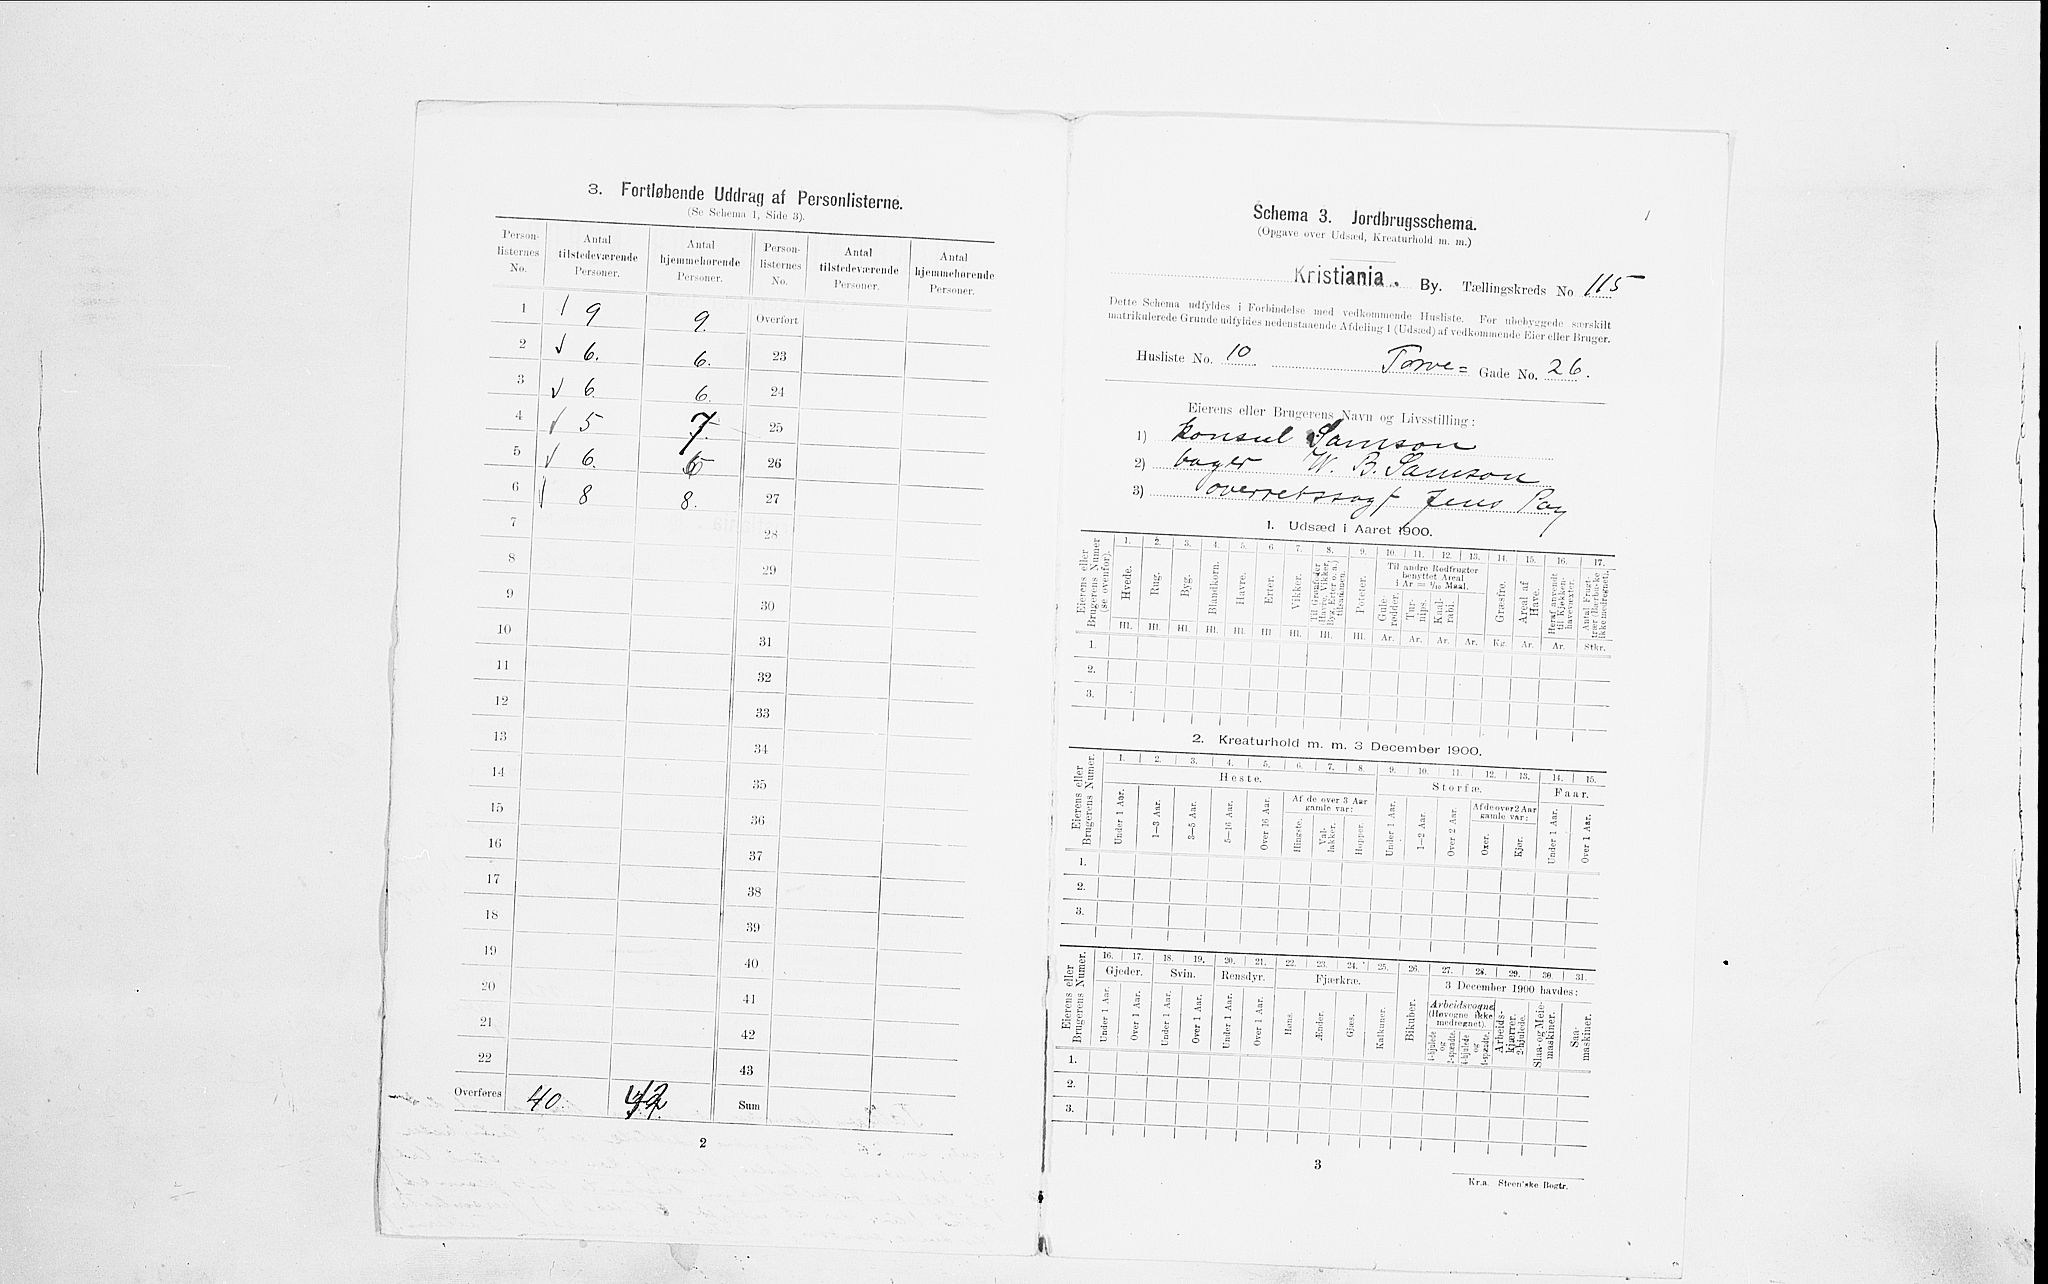 3. Fortløbende Uddrag af Personlisterne.
(Se Schema 1, Side 3).
Person-listernes No. Antal tilstedeværende Personer. Antal hjemmehørende Personer. Person-listernes No. Antal tilstedeværende Personer. Antal hjemmehørende Personer.
1 9 9. Overført
2 6. 6. 23
3 6. 6. 24
4 5 7. 25
5 6. 26
6 8 8. 27
7 28
8 29
9 30
10 31
11 32
12 33
13 34
14 35
15 36
16 37
17 38
18 39
19 40
20 41
21 42
22 43
Overføres 40. 42 Sum
2
Schema 3. Jordbrugsschema.
(Opgave over Udsæd, Kreaturhold m. m.)
Kristiania. By. Tællingskreds No 115
Dette Schema udfyldes i Forbindelse med vedkommende Husliste. For ubebyggede særskilt
matrikulerede Grunde udfyldes nedenstaaende Afdeling 1 (Udsæd) af vedkommende Eier eller Bruger.
Husliste No. 10 Torve= Gade No. 26.
Eierens eller Brugerens Navn og Livsstilling:
1) Konsul Samson
2) bager W. B. Samson
3) overretssagf Jens
1. Udsæd i Aaret 1900.
Eierens eller Brugerens Numer (se ovenfor).
1. 2. 3. 4. 5. 6. 7. 8. 9. 10. 11. 12. 13. 14. 15. 16. 17.
Hvede. Rug. Byg. Blandkorn. Havre. Erter. Vikker. Til Grønfoder (Havre, Vikker, Byg, Erter o. a.) tilsammen. Poteter. Til andre Rodfrugter benyttet Areal i Ar = 1/10 Maal. Gule-rødder. Tur-nips. Kaal-rabi. Græsfrø. Areal af Have. Heraf anvendt til Kjøkken-havevæxter. Antal Frugt-trær (Bærbuske ikke medregnet).
Hl. Hl. Hl. Hl. Hl. Hl Hl. Hl. Hl. Ar. Ar. Ar. Ar. Kg. Ar. Ar. Stkr.
1.
2.
3.
2. Kreaturhold m. m. 3 December 1900.
Eierens eller Brugerens Numer.
1. 2. 3. 4. 5. 6. 7. 8. 9. 10. 11. 12. 13. 14. 15.
Heste. Storfæ. Faar.
Under 1 Aar. 1—3 Aar. 3—5 Aar. 5—16 Aar. Over 16 Aar. Af de over 3 Aar gamle var: Hingste. Val-lakker. Hopper. Under 1 Aar. 1—2 Aar. Over 2 Aar. Af de over 2 Aar gamle var: Oxer. Kjør. Under 1 Aar. Over 1 Aar.
1.
2.
3.
Eierens eller Brugerens Numer.
16. 17. 18. 19. 20. 21. 22. 23. 24. 25. 26. 27. 28. 29. 30. 31.
Gjeder. Svin. Rensdyr. Fjærkræ. Bikuber. 3 December 1900 havdes:
Under 1 Aar. Over 1 Aar. Under 1 Aar. Over 1 Aar. Under 1 Aar. Over 1 Aar. Høns. Ænder. Gjæs. Kalkuner. Arbeidsvogne (Høvogne ikke medregnet). 4-hjulede og 2-spændte. 4-hjulede og 1-spændte. Arbeids-kjærrer, 2-hjulede. Slaa- og Meie-maskiner. Saa-maskiner.
1.
2.
3.
3
Kr.a. Steen'ske Bogtr.